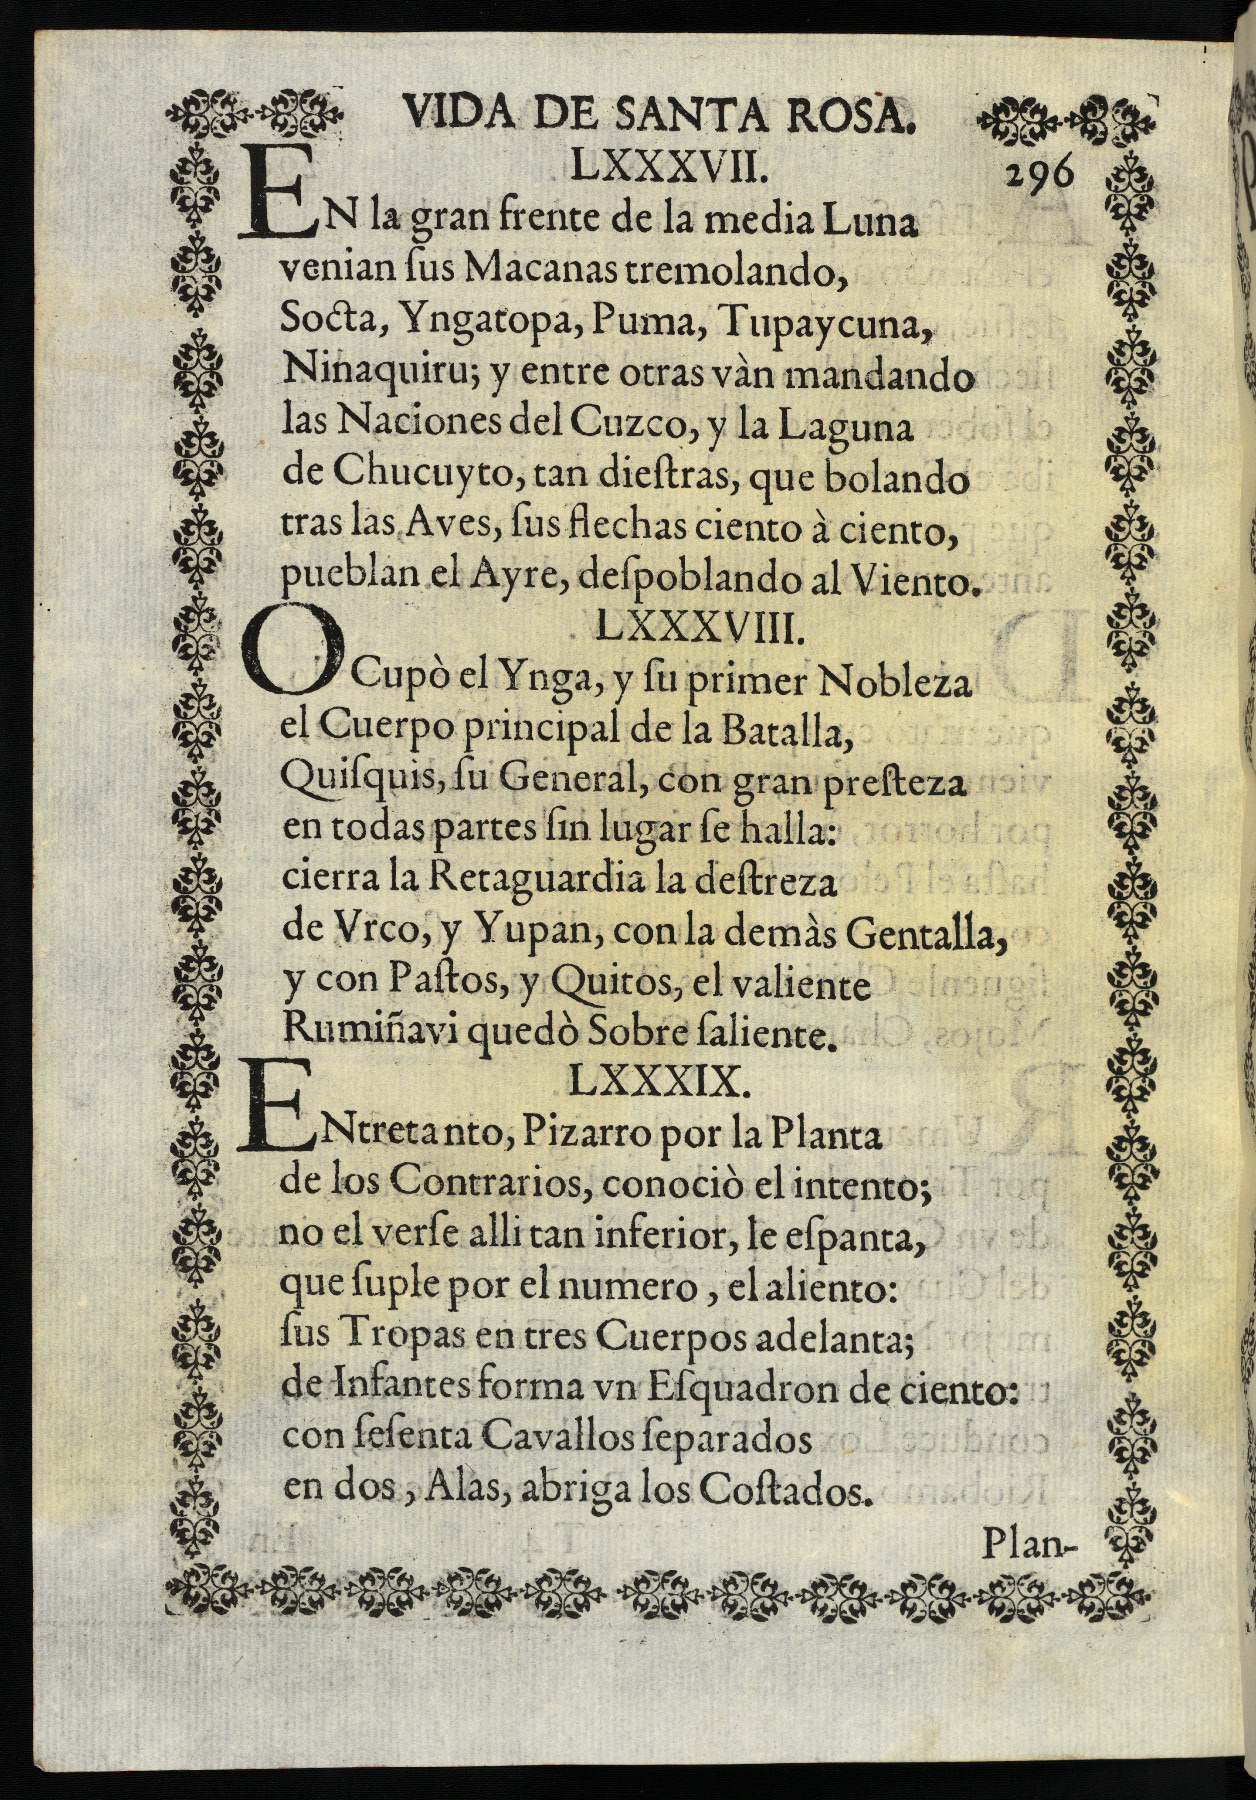 VIDA DE SANTA ROSA.
LXXXVII. 296
EN la gran frente de la media Luna
venian ſus Macanas tremolando,
Socta, Yngatopa, Puma, Tupaycuna,
Ninaquiru; y entre otras vàn mandando
las Naciones del Cuzco, y la Laguna
de Chucuyto, tan dieſtras, que bolando
tras las Aves, ſus flechas ciento à ciento,
pueblan el Ayre, deſpoblando al Viento.
LXXXVIII.
OCupò el Ynga, y ſu primer Nobleza
el Cuerpo principal de la Batalla,
Quiſquis, ſu General, con gran preſteza
en todas partes ſin lugar ſe halla:
cierra la Retaguardia la deſtreza
de Vrco, y Yupan, con la demàs Gentalla,
y con Paſtos, y Quitos, el valiente
Rumiñavi quedò Sobre ſaliente.
LXXXIX.
ENtretanto, Pizarro por la Planta
de los Contrarios, conociò el intento;
no el verſe alli tan inferior, le eſpanta,
que ſuple por el numero, el aliento:
ſus Tropas en tres Cuerpos adelanta;
de Infantes forma vn Eſquadron de ciento:
con ſeſenta Cavallos ſeparados
en dos, Alas, abriga los Coſtados.
Plan-